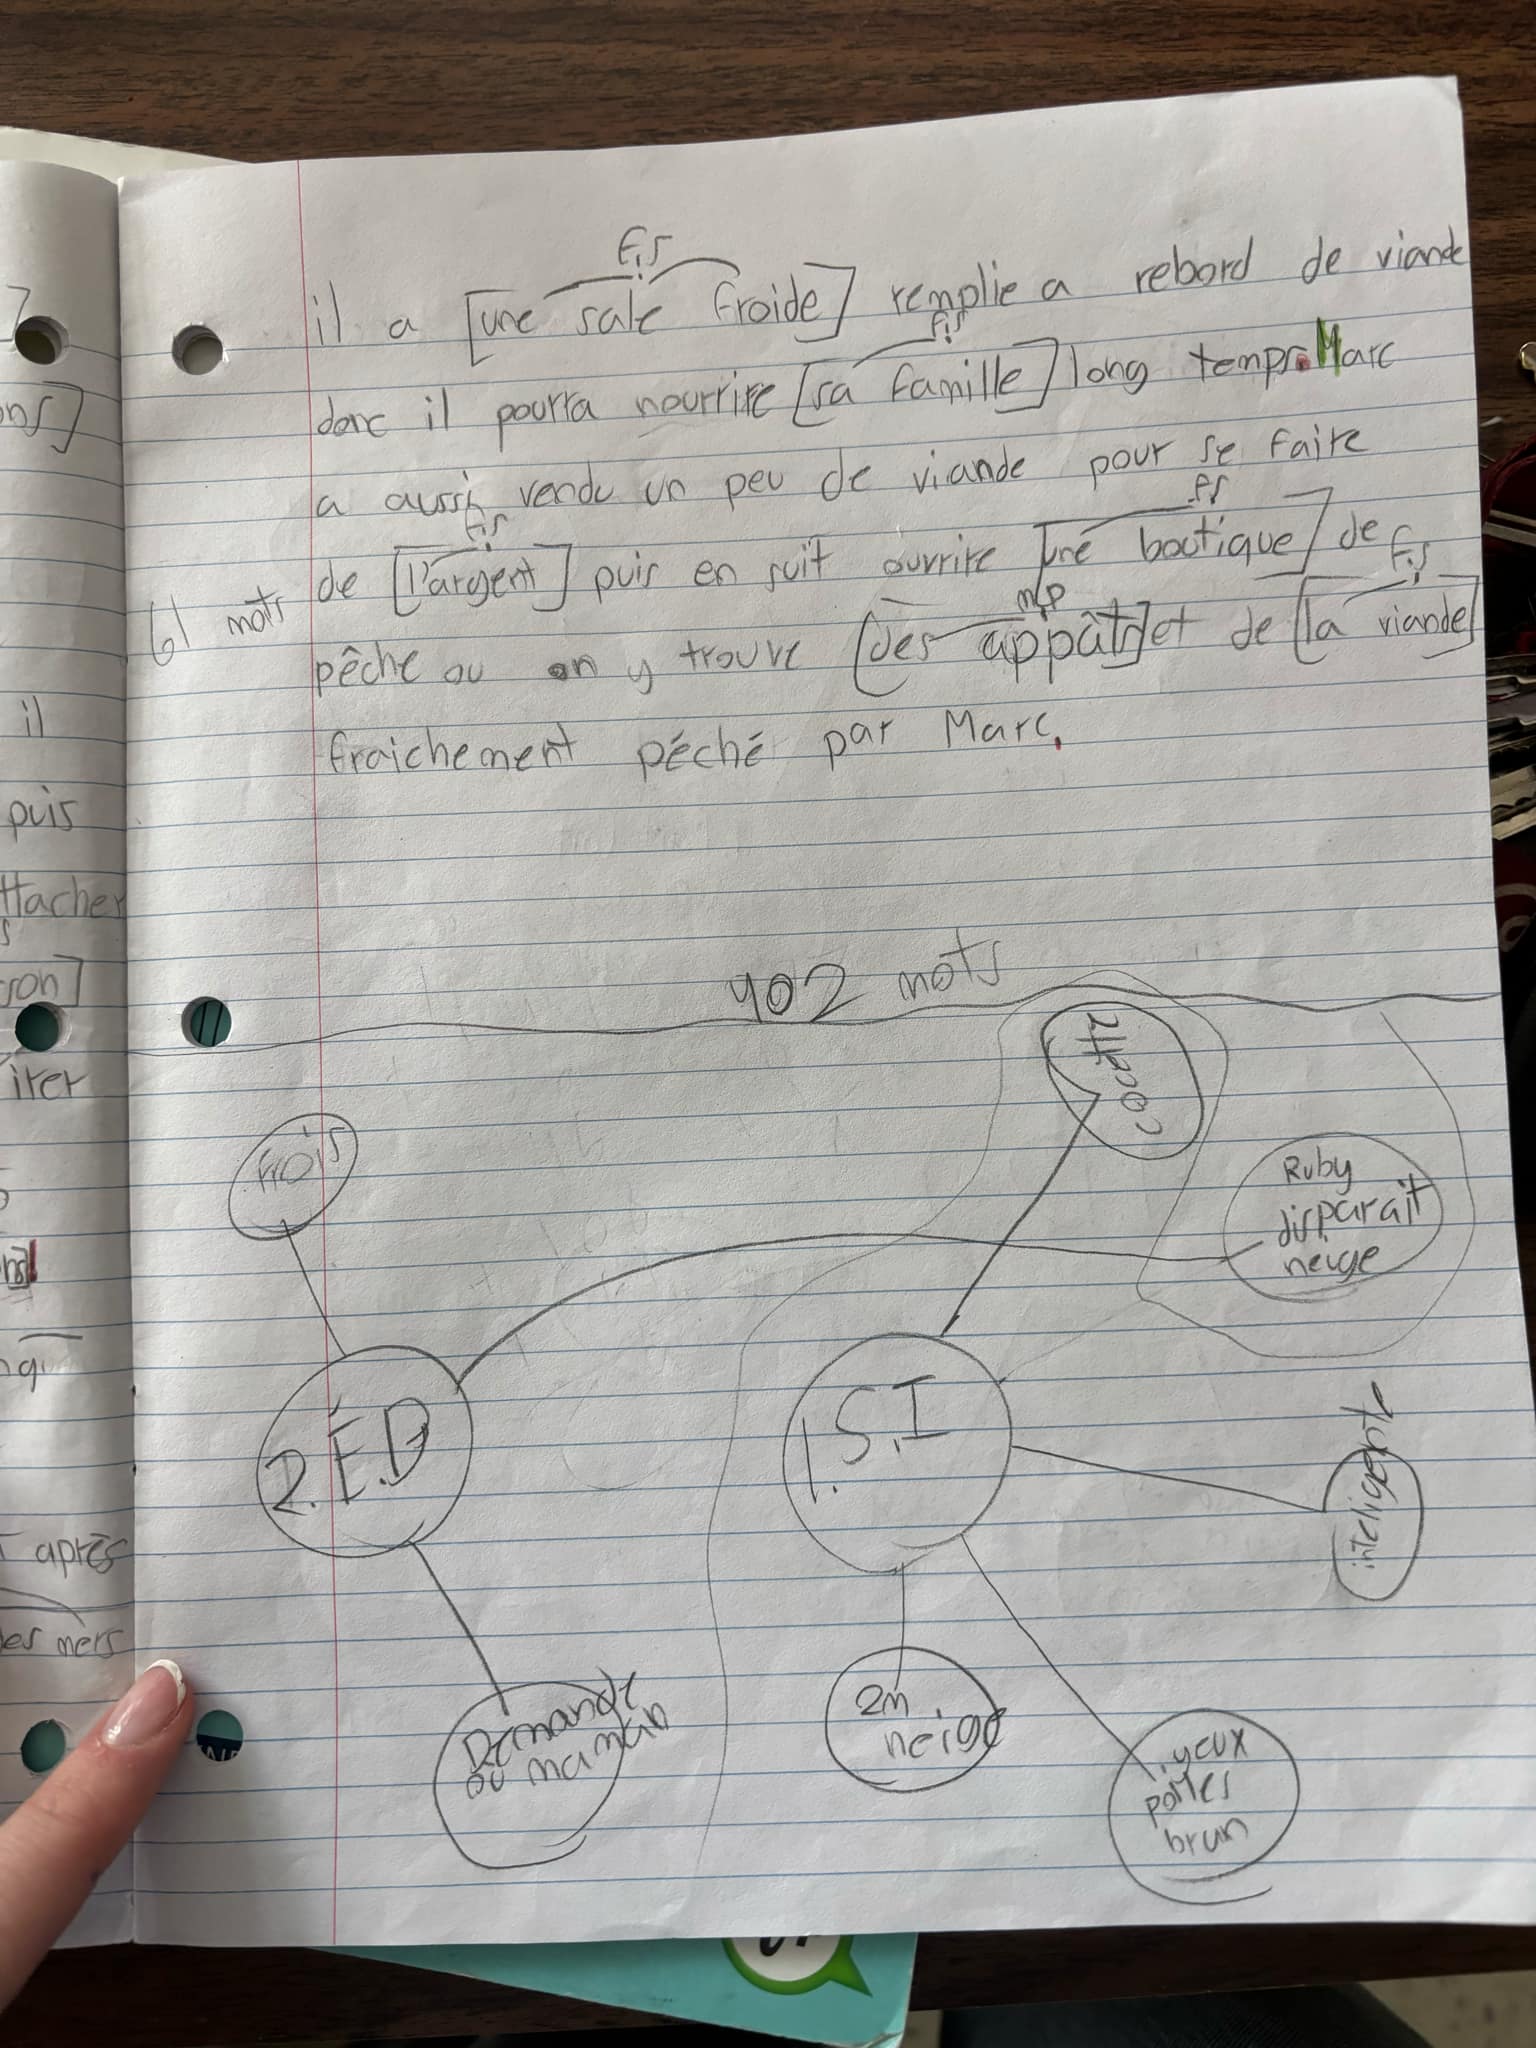 F.S
il a [une sale froide] remplie a rebord de viande
F.S
donc il pourra nourrire [sa famille] long temps. Marc
a aussi vendu un peu de viande pour se faire
F.S
F.S
de [l'argent] puis en suit ouvrire [une boutique] de
61 mots
m.p
F.S
pêche ou on y trouve [des appâts] et de [la viande]
fraichement péché par Marc.
402 mots
cocotte
frois
Ruby
disparait
neige
2. É.D
1. S.I
inteligente
Demande
où maman
2m
neige
yeux
pattes
brun
ons]
il
puis
ttacher
son]
irer
après
es mers